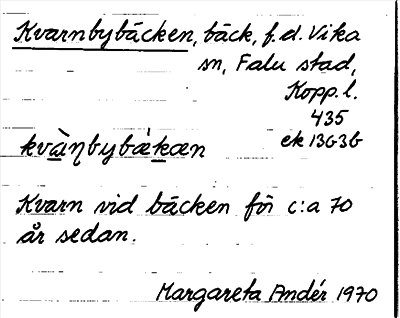 Kvarnbybäcken, bäck, f.d. Vika
sn, Falu stad,
Kopp. l.
435
ek 13G3b
kvàηbybækæn
Kvarn vid bäcken för c:a 70
år sedan.
Margareta Andér 1970